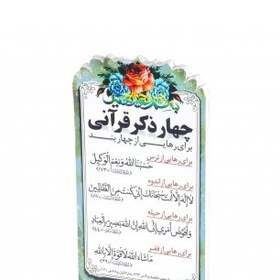 چهار ذکر قرآنی
برای رهایی از چهار بند
برای رهایی از ترس
حَسْبُنَا اللهُ وَنِعْمَ الْوَكِيلُ
برای رهایی از اندوه
لا إِلهَ إِلّا أَنْتَ سُبْحانَكَ إِنّي كُنْتُ مِنَ الظّالِمينَ
برای رهایی از حیله
وَأُفَوِّضُ أَمْري إِلَى اللهِ إِنَّ اللهَ بَصيرٌ بِالْعِبادِ
برای رهایی از فقر
ما شاءَ اللهُ لا قُوَّةَ إِلّا بِاللهِ